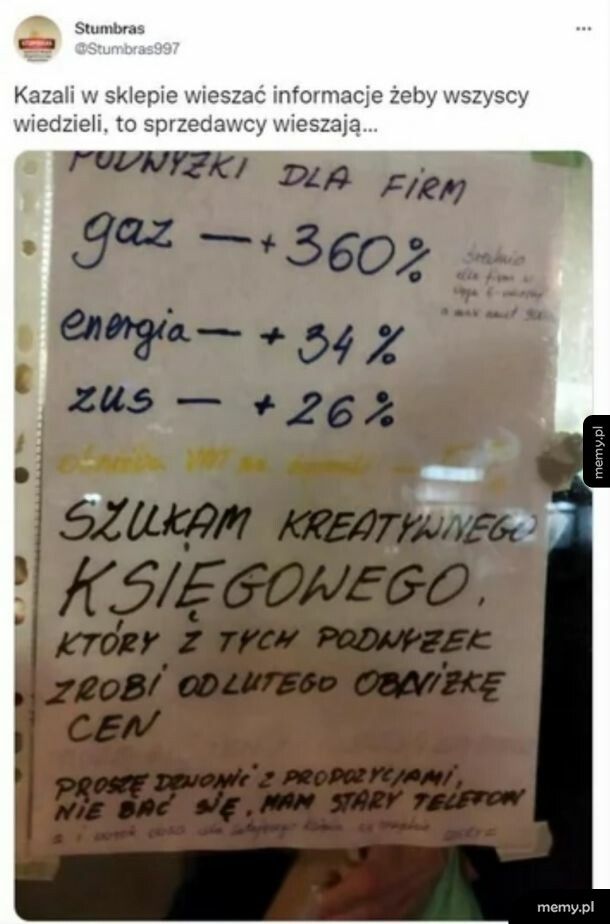 Stumbras
@Stumbras997
Kazali w sklepie wieszać informacje żeby wszyscy
wiedzieli, to sprzedawcy wieszają...
PODWYŻKI DLA FIRM
gaz — + 360%
średnio
dla firm w
energia — + 34%
zus — + 26%
obniżka VAT na
SZUKAM KREATYWNEGO
KSIĘGOWEGO,
KTÓRY Z TYCH PODWYŻEK
ZROBI OD LUTEGO OBNIŻKĘ
CEN
PROSZĘ DZWONIĆ Z PROPOZYCJAMI,
NIE BAĆ SIĘ, MAM STARY TELEFON
memy.pl
memy.pl